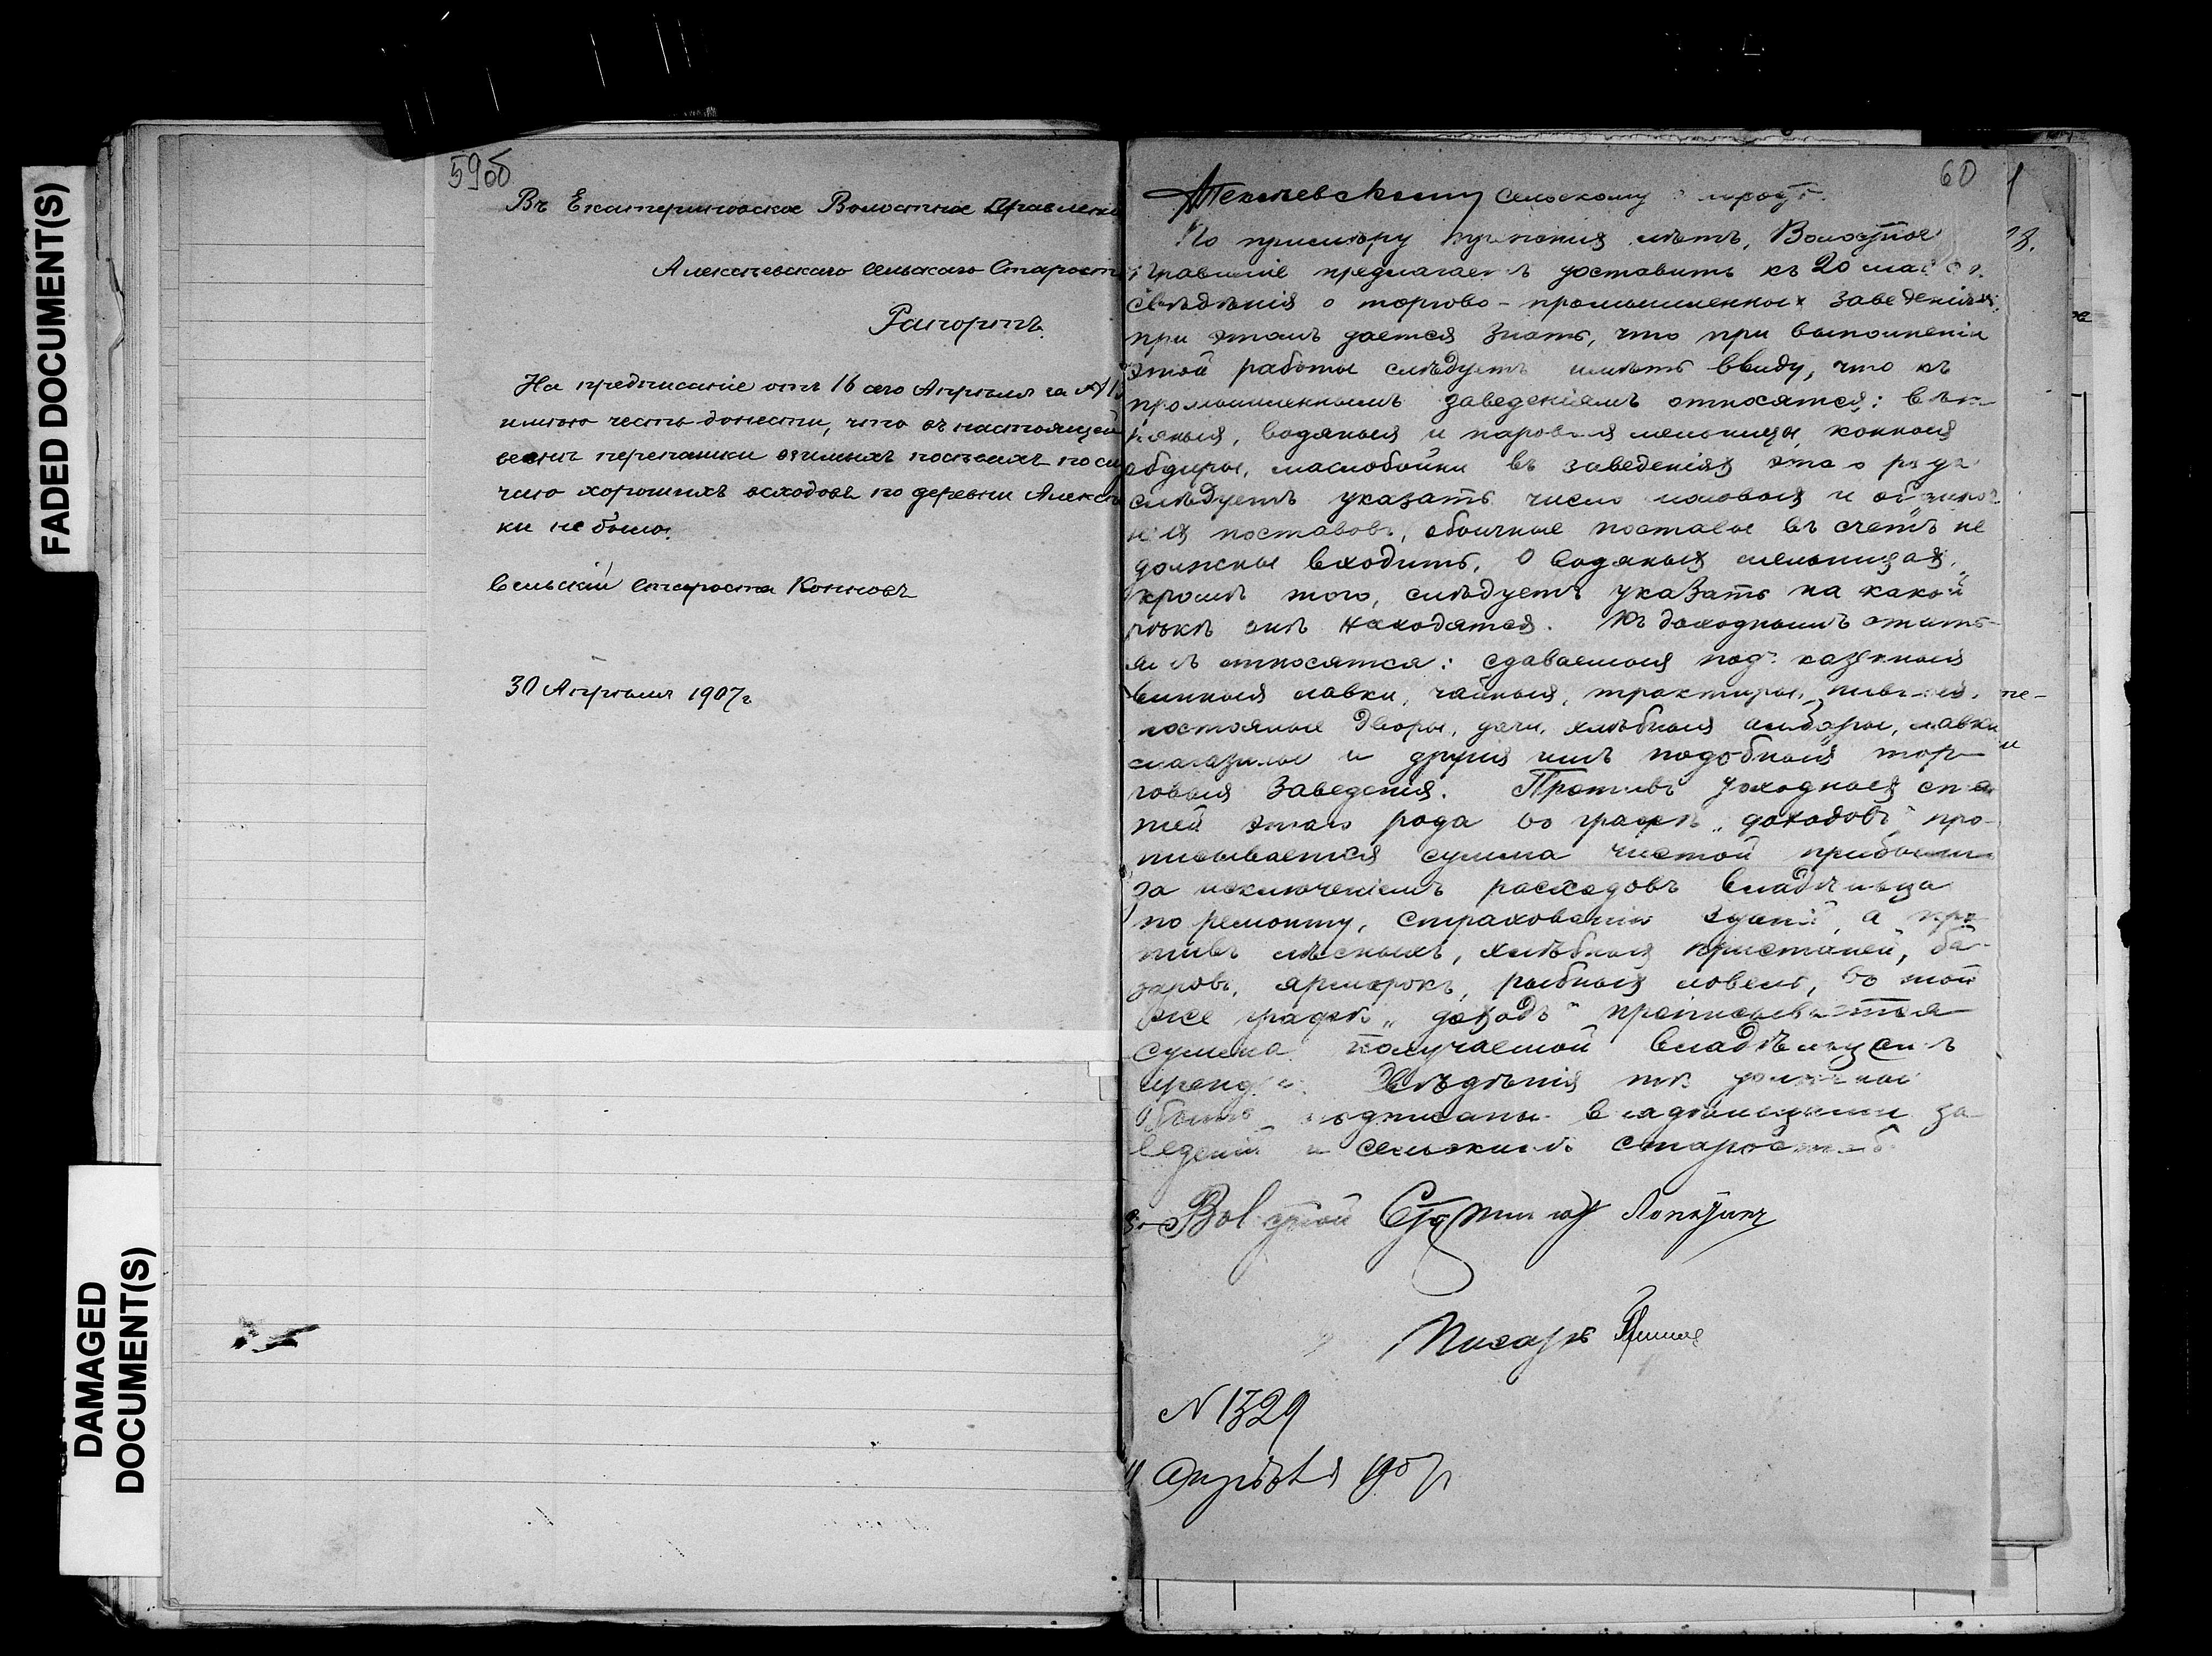 FADED DOCUMENT(S)
DAMAGED
DOCUMENT(S)
59об
Въ Екатериновское Волостное Правлені
Алексѣевскаго Сельскаго Старост
Рапортъ.
На предписаніе отъ 16 сего Апрѣля за №
имѣю честь донести, что въ настоящей
веснѣ перепашки озимыхъ посѣвахъ по
чаю хорошихъ всходовъ по деревни Алексѣ
ки не было.
Сельскій Староста Конновъ
30 Апрѣля 1907 г
60
сельскому
По примѣру лѣтъ, Волостное
Правленіе предлагаетъ доставить къ 20 мая
свѣдѣнія о торгово-промышленныхъ заведеніяхъ;
при этомъ дается знать, что при выполненіи
этой работы слѣдуетъ имѣть ввиду, что къ
промышленнымъ заведеніямъ относятся: вѣт
ряныя, водяныя и паровыя мельницы, конныя
обдиры, маслобойни въ заведеніях этого рода
слѣдуетъ указать число и
поставовъ, обычные поставы въ счетъ не
должны входить. О водяных мельницах,
кромѣ того, слѣдуетъ указать на какой
рѣкѣ онѣ находятся. Къ доходнымъ стать-
ямъ относятся: сдаваемыя под казенныя
винныя лавки, чайныя, трактиры, пивныя,
постоялые дворы, дачи, хлѣбныя амбары, лавки
магазины и другія имъ подобныя тор-
говыя заведенія. Противъ доходных ста
тей этого рода въ графѣ „доходовъ" про-
писывается сумма чистой прибыли
за исключеніемъ расходовъ владѣльца
по ремонту, страхованію зданій, а про
тивъ лѣсныхъ, хлѣбных пристаней, ба-
заровъ, ярмарокъ, рыбных ловель, въ той
же графѣ „доходъ" прописывается
сумма получаемой владѣльцемъ
аренды. Свѣдѣнія тѣ должны
быть подписаны владѣльцами за-
веденій и сельскимъ старостой.
Волостной Старшина Лопатин
Писарь
N 1329
Апрѣля 1907 г